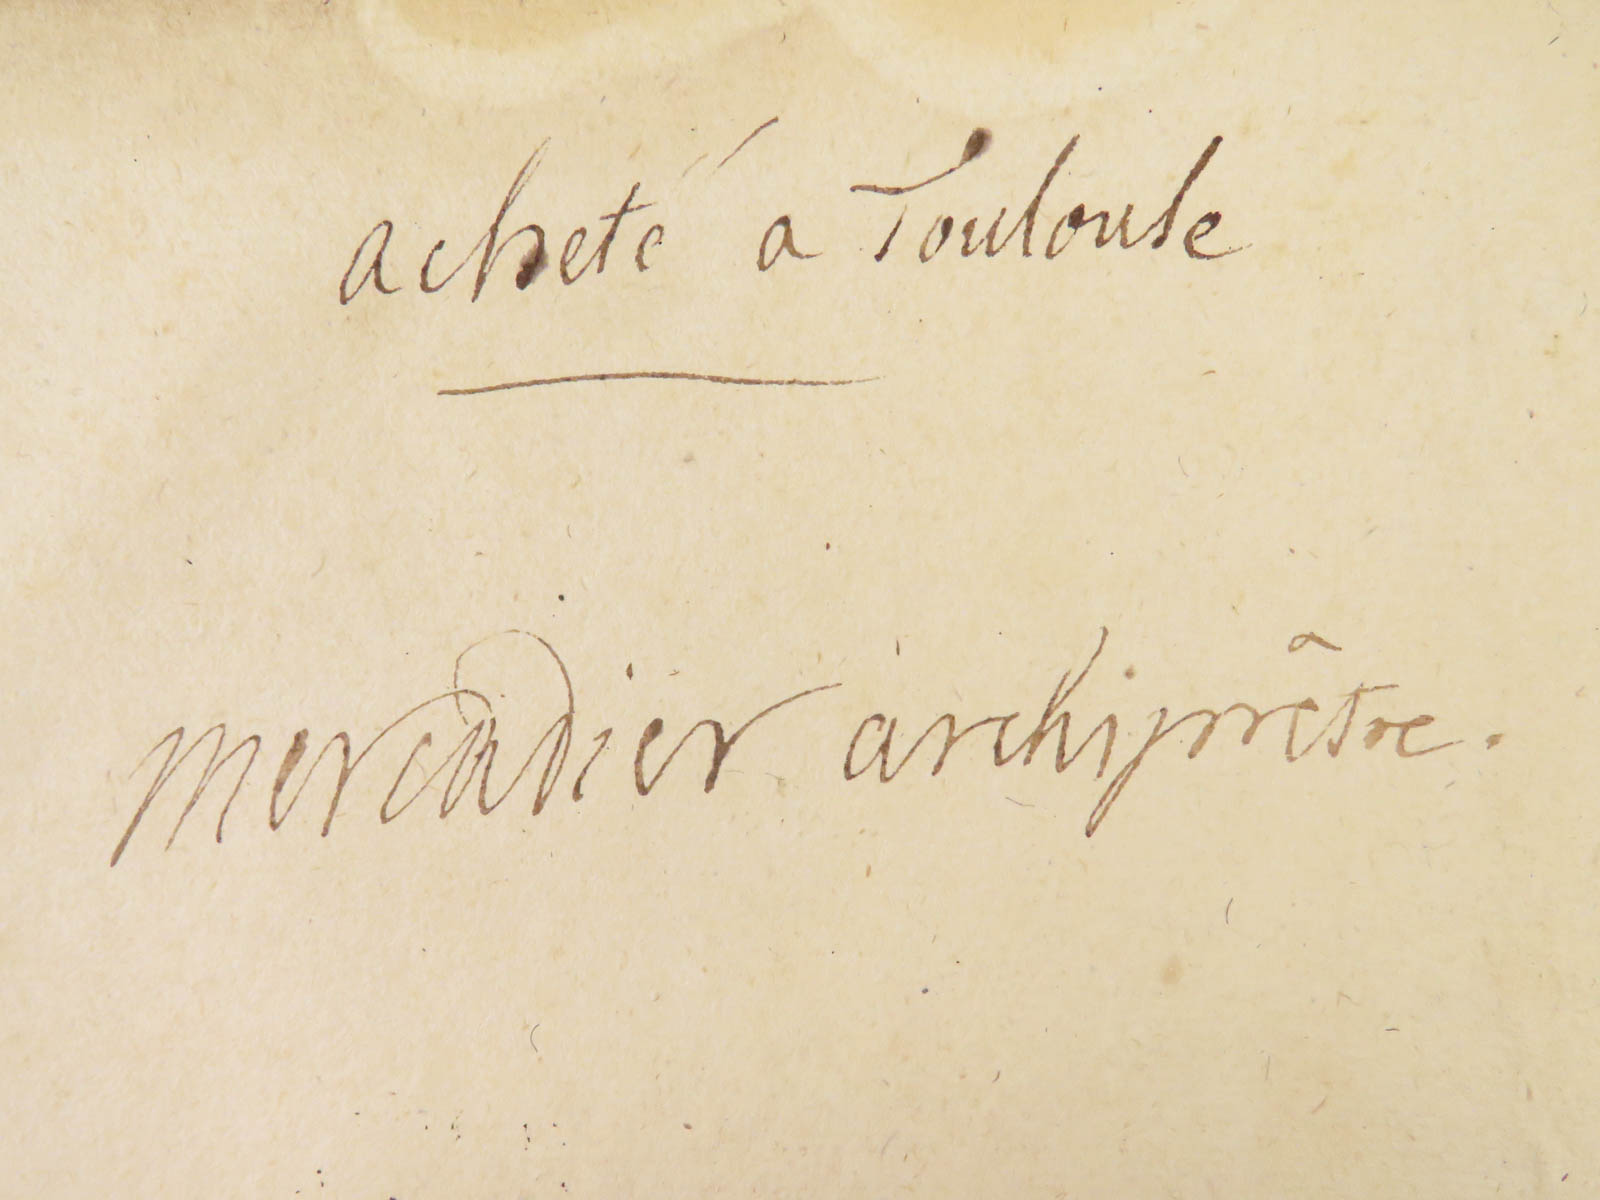 acheté a Toulouse
mercadier archiprêtre.